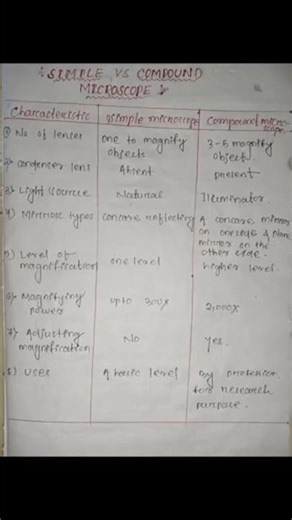 SIMPLE VS COMPOUND
MICROSCOPE
Characteristic simple microscope Compound micro-
scope
1) No of lenses one to magnify 3-5 magnify
objects object
2) condenser lens Absent present
3) Light source Natural Illuminator
4) Mirror types concave reflecting A concave mirror
on one side & plane
mirror on the
other side.
5) Level of one level higher level
magnification
6) Magnifying upto 300x 2,000x
power
7) Adjusting No yes
magnification
8) Uses A basic level By
for research
purpose.